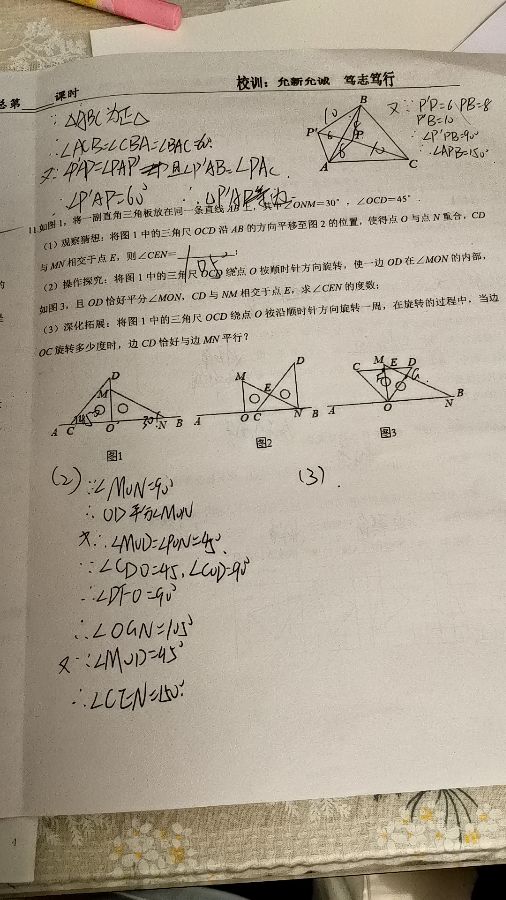 总第
课时
校训：允新允诚 笃志笃行
∵△ABC为正△
∴∠ACB=∠CBA=∠BAC=60°
又∵P'A=PA 且∠P'AB=∠PAC
∴∠P'AP=60°
又∵P'P=6 PB=8
P'B=10
∴∠P'PB=90°
∴∠APB=150°
B
10
P'
6
P
6
10
A
C
11.如图1，将一副直角三角板放在同一条直线AB上，其中∠ONM=30°，∠OCD=45°.
（1）观察猜想：将图1中的三角尺OCD沿AB的方向平移至图2的位置，使得点O与点N重合，CD
与MN相交于点E，则∠CEN=105°;
（2）操作探究：将图1中的三角尺OCD绕点O按顺时针方向旋转，使一边OD在∠MON的内部，
如图3，且OD恰好平分∠MON，CD与NM相交于点E，求∠CEN的度数；
（3）深化拓展：将图1中的三角尺OCD绕点O按沿顺时针方向旋转一周，在旋转的过程中，当边
OC旋转多少度时，边CD恰好与边MN平行？
D
M
A C O N B
30°
图1
D
M
E
A O C N B
图2
C M E D
F G
A O N B
图3
(2) ∵∠MON=90°
∴OD平分∠MON
又∵∠MOD=∠DON=45°
∵∠CDO=45,∠COD=90°
∴∠DFO=90°
∴∠OGN=105°
又∵∠MOD=45°
∴∠CEN=150°
(3).